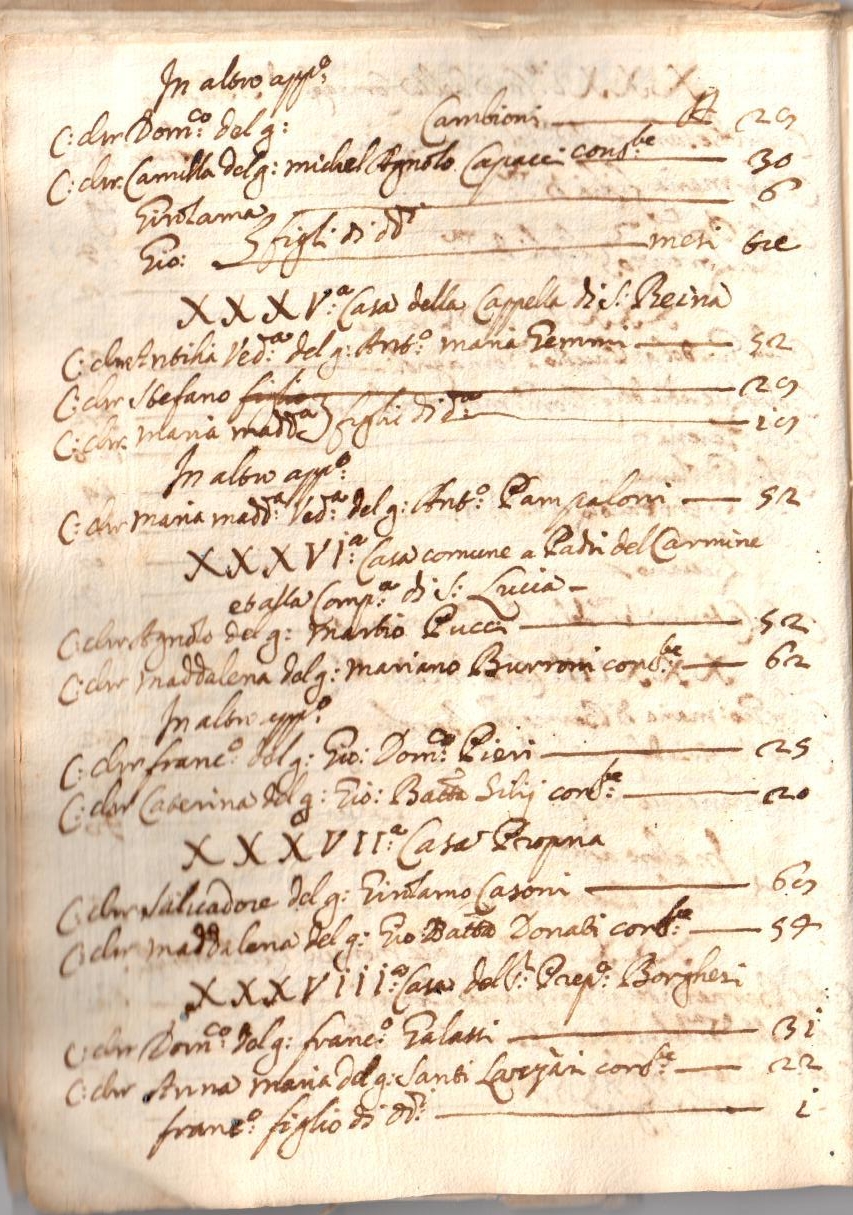 In altro app.º
C: chr Dom.co del g: Cambioni — 29
C: chr. Camilla del g: michel Agnolo Capacci cons.te — 30
Girolama — 6
Gio: } figli di dd.i — mesi tre
XXXV.a Casa della Cappella di S: Reina
C: chr Antilia Ved.a del g: Ant.º maria Gemmi — 52
C: chr Stefano figlio — 29
C: chr. maria madd.a } figli di d.a — 19
In altro app.º
C: chr maria madd.a Ved.a del g: Ant.º Pampaloni — 52
XXXVI.a Casa comune a Padri del Carmine
et alla Comp.a di S: Lucia —
C: chr Agnolo del g: Martio Pucci — 52
C: chr Maddalena del g: mariano Burroni cons.te — 62
In altro app.º
C: chr franc.º del g: Gio: Dom.co Pieri — 25
C: chr Caterina del g: Gio: Batta Silij cons.te — 20
XXXVII.a Casa Propria
C: chr Salvadore del g: Girolamo Casoni — 69
C: chr maddalena del g: Gio Batta Donati cons.te — 54
XXXVIII.a Casa del S.r Prep.º Borghesi
C: chr Dom.co del g: franc.º Galassi — 31
C: chr Anna maria del g: Santi cons.te — 22
franc.º figlio di dd.i — i